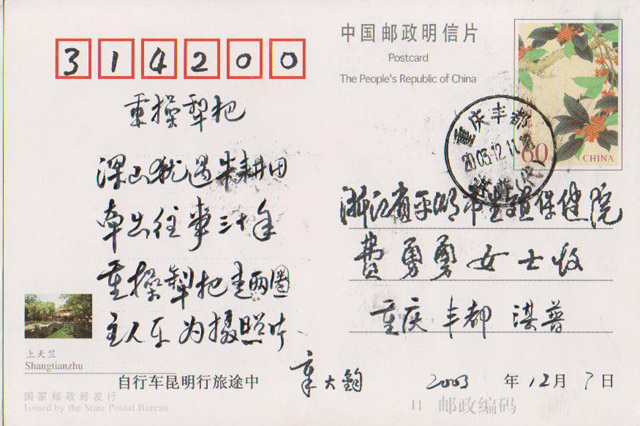 中国邮政明信片
Postcard
The People's Republic of China
314200
60
CHINA
重庆丰都
2003.12.11
重操犁耙
深山犹遇牛耕田
牵出往事三十年
重操犁耙走两圈
主人乐为摄照片
浙江省平湖市生殖保健院
费勇勇女士收
重庆丰都 湛普
上天竺
Shangtianzhu
自行车昆明行旅途中
章大钧
2003 年 12月 7日
国家邮政局发行
Issued by the State Postal Bureau
11 邮政编码